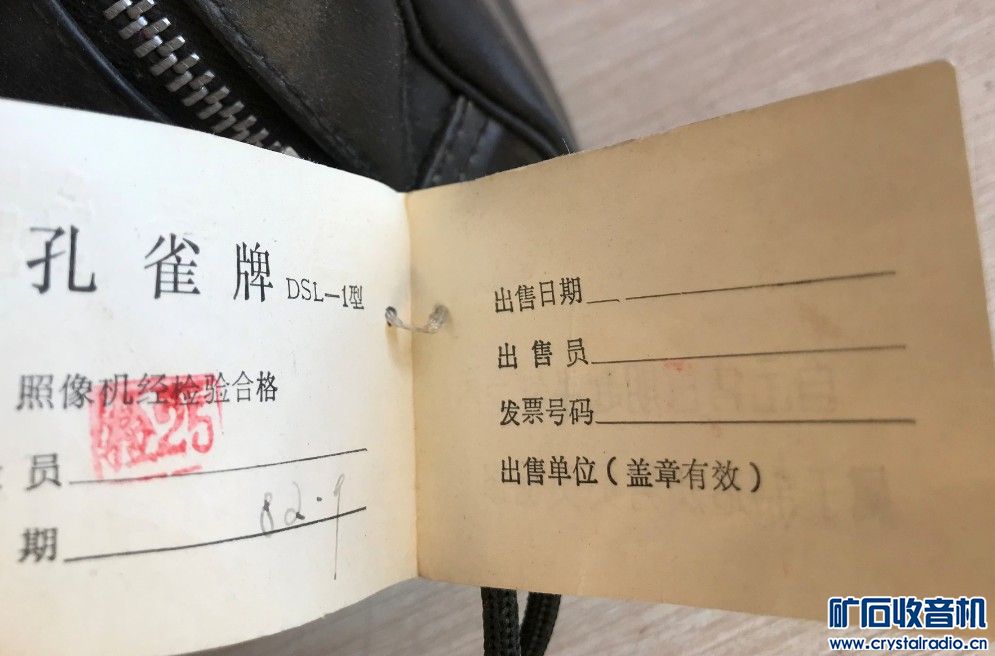 孔雀牌 DSL-1型
照像机经检验合格
检25
员
期 82.9
出售日期
出售员
发票号码
出售单位(盖章有效)
矿石收音机
www.crystalradio.cn